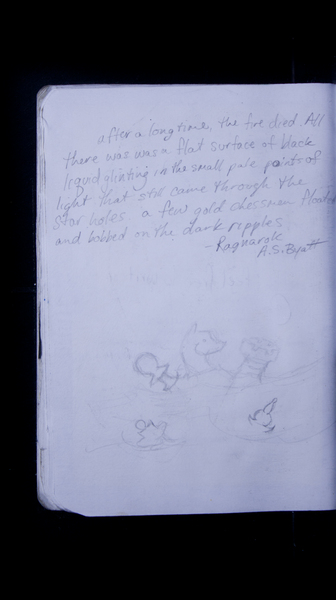 after a long time, the fire died. All
there was was a flat surface of black
liquid glinting in the small pale points of
light that still came through the
star holes. a few gold chessmen floated
and bobbed on the dark ripples.
- Ragnarok
A.S. Byatt